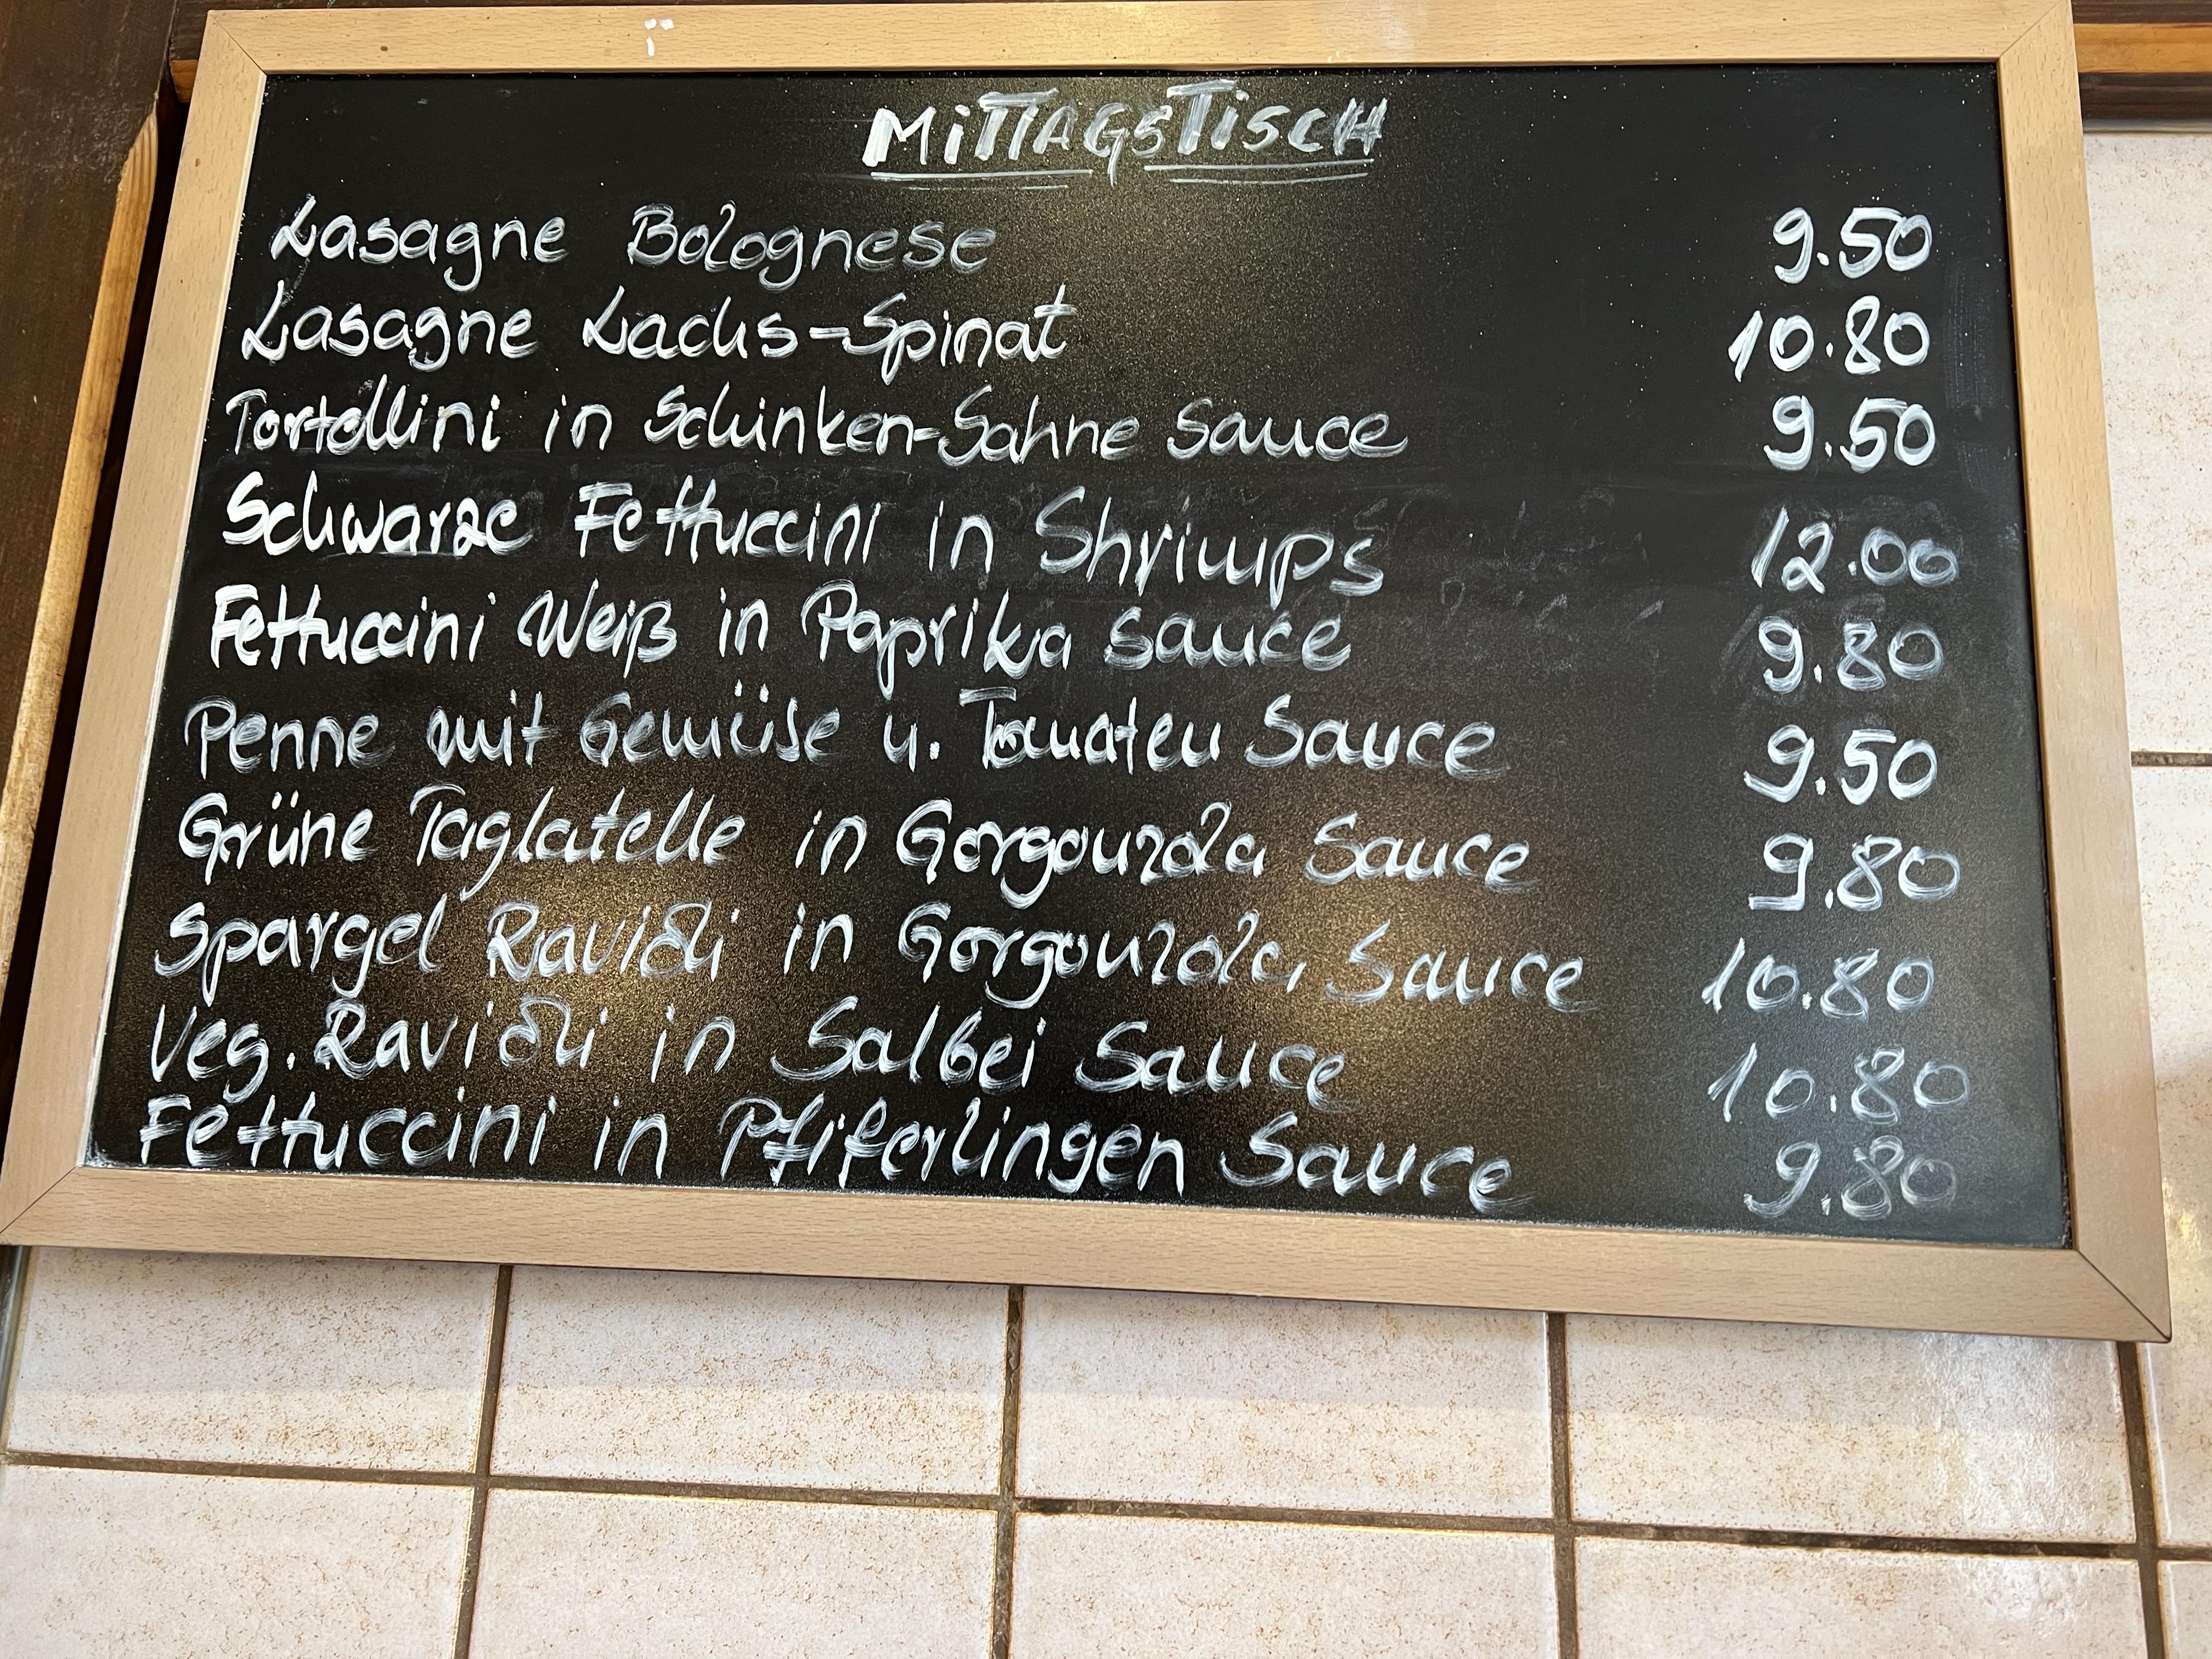 MiTTAGSTiSCH
Lasagne Bolognese 9.50
Lasagne Lachs-Spinat 10.80
Tortellini in Schinken-Sahne Sauce 9.50
Schwarze Fettuccini in Shrimps 12.00
Fettuccini Weiß in Paprika Sauce 9.80
Penne mit Gemüse u. Tomaten Sauce 9.50
Grüne Taglatelle in Gorgonzola Sauce 9.80
Spargel Ravioli in Gorgonzola Sauce 10.80
Veg. Ravioli in Salbei Sauce 10.80
Fettuccini in Pfiferlingen Sauce 9.80